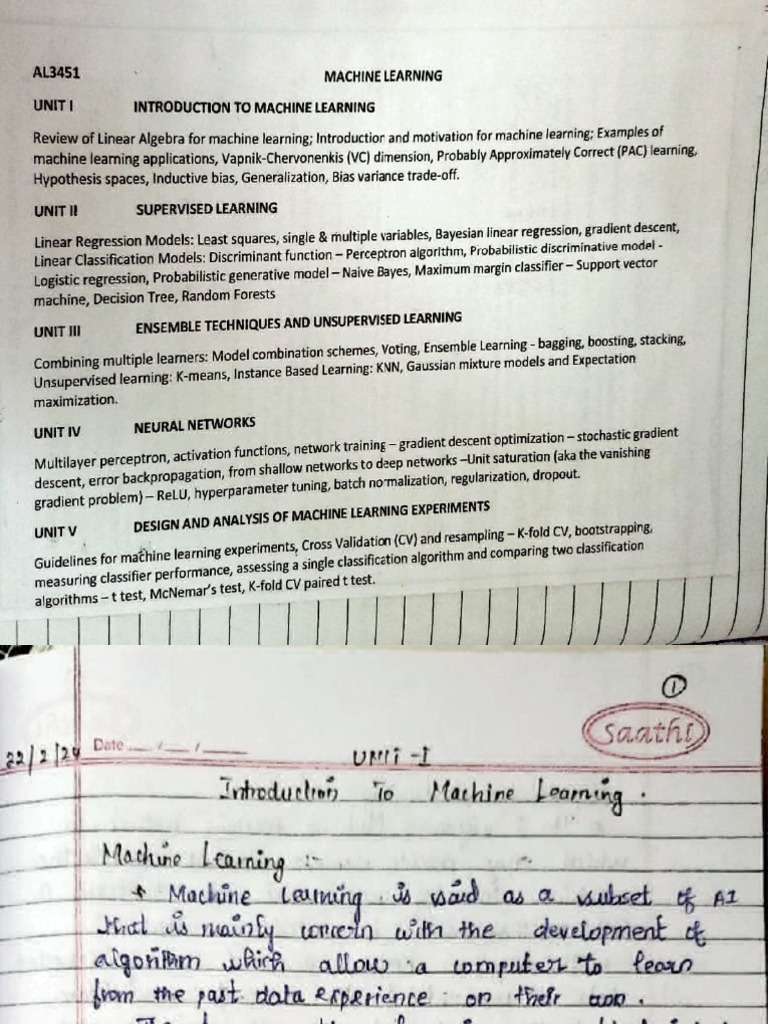 AL3451 MACHINE LEARNING
UNIT I INTRODUCTION TO MACHINE LEARNING
Review of Linear Algebra for machine learning; Introductior and motivation for machine learning; Examples of
machine learning applications, Vapnik-Chervonenkis (VC) dimension, Probably Approximately Correct (PAC) learning,
Hypothesis spaces, Inductive bias, Generalization, Bias variance trade-off.
UNIT II SUPERVISED LEARNING
Linear Regression Models: Least squares, single & multiple variables, Bayesian linear regression, gradient descent,
Linear Classification Models: Discriminant function – Perceptron algorithm, Probabilistic discriminative model -
Logistic regression, Probabilistic generative model – Naive Bayes, Maximum margin classifier – Support vector
machine, Decision Tree, Random Forests
UNIT III ENSEMBLE TECHNIQUES AND UNSUPERVISED LEARNING
Combining multiple learners: Model combination schemes, Voting, Ensemble Learning - bagging, boosting, stacking,
Unsupervised learning: K-means, Instance Based Learning: KNN, Gaussian mixture models and Expectation
maximization.
UNIT IV NEURAL NETWORKS
Multilayer perceptron, activation functions, network training – gradient descent optimization – stochastic gradient
descent, error backpropagation, from shallow networks to deep networks –Unit saturation (aka the vanishing
gradient problem) – ReLU, hyperparameter tuning, batch normalization, regularization, dropout.
UNIT V DESIGN AND ANALYSIS OF MACHINE LEARNING EXPERIMENTS
Guidelines for machine learning experiments, Cross Validation (CV) and resampling – K-fold CV, bootstrapping,
measuring classifier performance, assessing a single classification algorithm and comparing two classification
algorithms – t test, McNemar's test, K-fold CV paired t test.
1
Saathi
22/2/24 Date __/__/__ UNIT -I
Introduction To Machine Learning .
Machine Learning :-
* Machine Learning is said as a subset of AI
that is mainly concern with the development of
algorithm which allow a computer to learn
from the past data experience on their own .